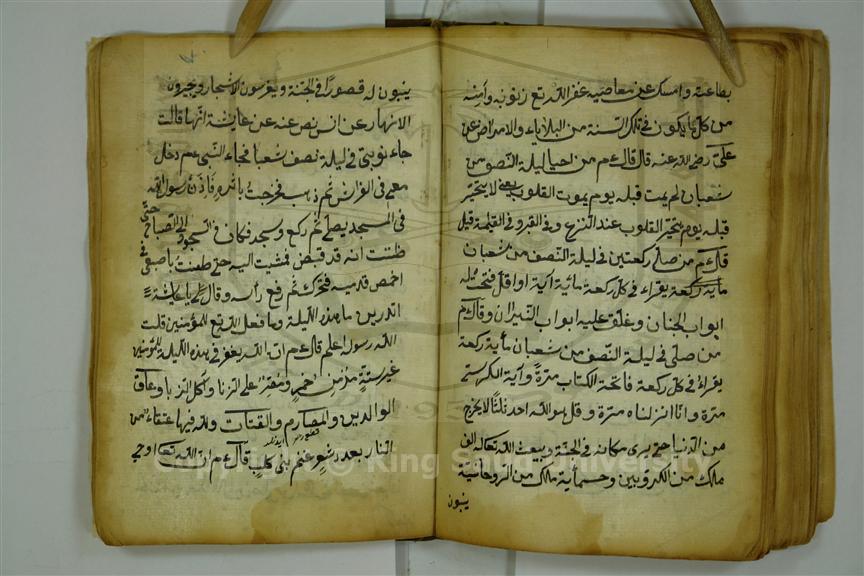 بطاعته وامسك عن معاصيه غفر الله تع ذنوبه وآمنه
من كل ما يكون في تلك السنة من البلاياء والامراض عن
علي رضي الله عنه قال قال ءم من احيا ليلة النصف من
شعبان لم يمت قلبه يوم يموت القلوب يعني لا يتحير
قلبه يوم يتحير القلوب عند النزع وفي القبر وفي القيمة قيل
قال ءم من صلى ركعتين في ليلة النصف من شعبان
ماية ركعة يقراء في كل ركعة مائية آية او اقل فتحت له
ابواب الجنان وغلق عليه ابواب النيران وقال ءم
من صلى في ليلة النصف من شعبان مأية ركعة
يقراء في كل ركعة فاتحة الكتاب مرة وآية الكرسي
مرة وانا انزلناه مرة وقل هو الله احد ثلثا لا يخرج
من الدنيا حتى يرى مكانه في الجنة ويبعث الله تعالى الف
ملك من الكروبين وخمسمأية ملك من الروحانية
يبنون
يبنون له قصورا في الجنة ويغرسون الاشجار ويجرون
الانهار عن انس رضي عنه عن عايشة انها قالت
جاء نوبتي في ليلة نصف شعبا فجاء النبي ءم دخل
معي في الفراش ثم ذهب فخرجت باثره فاذن رسول الله
في المسجد يصلي ثم ركع وسجد فكان في السجود الى الصباح حتى
ظننت انه قد قبض فمشيت اليه حتى طعنت باصبعي في
اخمص قدميه فتحرك ثم رفع رأسه وقال لي يا عايشة
اتدرين ما هذه الليلة وما فعل الله تع المؤمنين قلت
الله رسوله اعلم قال ءم ان الله يغفر في هذه الليلة للمؤمنين
غير ستة مؤمن خمر ومصر على الزنا وآكل الربا وعاق
الوالدين والمصارم والقتات ولله فيها عتقاء من
النار بعدد شعر غنم بني كلب قال ءم ان الله تعالى اوحى
Copyright © King Saud University